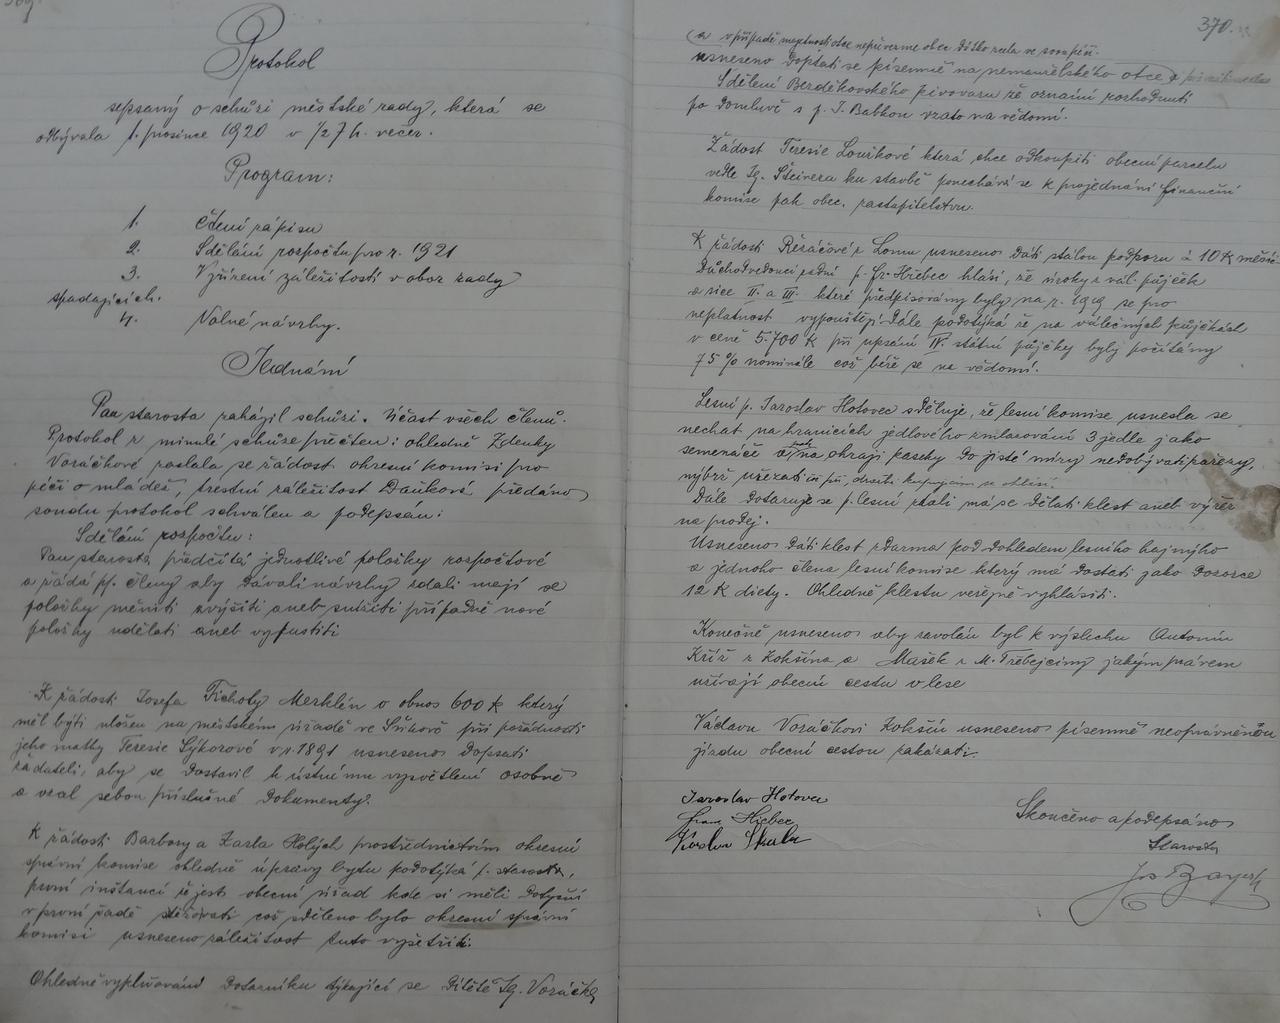 369.
Protokol
sepsaný o schůzi městské rady, která se
odbývala 1. prosince 1920 v 1/2 7 h. večer.
Program:
1. Čtení zápisu
2. Sdělání rozpočtu pro r. 1921
3. Vyřízení záležitostí v obor rady
spadajících.
4. Volné návrhy.
Jednání
Pan starosta zahájil schůzi. Účast všech členů.
Protokol z minulé schůze přečten: ohledně Zdenky
Voráčkové zaslala se žádost okresní komisi pro
péči o mládež, trestní záležitost Daňková předáno
soudu protokol schválen a podepsán:
Sdělání rozpočtu:
Pan starosta předčítá jednotlivé položky rozpočtové
a žádá pp. členy aby dávali návrhy zdali mají se
položky měniti zvýšiti aneb snížiti případně nové
položky udělati aneb vypustiti
K žádosti Josefa Tichoty Merklín o obnos 600 K který
měl býti uložen na městském úřadě ve při
jeho matky Teresie Sýkorové v r. 1891 usneseno dopsati
žadateli, aby se dostavil k ústnímu vysvětlení osobně
a vzal sebou příslušné dokumenty.
K žádosti Barbory a Karla Holých prostřednictvím okresní
správní komise ohledně úpravy bytu podotýká p. starosta,
první instancí že jest obecní úřad kde si měli dotyční
v první řadě stěžovati což sděleno bylo okresní správní
komisi usneseno záležitost tuto vyšetřiti.
Ohledně vyplňování dotazníku týkající se dítětě Ig. Voráčka
370.
(a v případě majetnosti otce nepřevezme obec dítko zcela ve
usneseno doptati se písemně na nemanželského otce
Sdělení Berděkovského pivovaru že oznámí rozhodnutí
po domluvě s p. J. Babkou vzato na vědomí.
Žádost Teresie Louškové která chce odkoupiti obecní parcelu
vedle Ig. Steinera ku stavbě ponechává se k projednání finanční
komise pak obec. zastupitelstvu.
K žádosti Řezáčové z Lomu usneseno dáti stálou podporu à 10 K měsíč.
Důchodvedoucí p. Fr. Hřebec hlásí, že úroky z vál. půjček
a sice II. a III. které předpisovány byly na r. 1919 se pro
neplatnost vypouštějí. Dále podotýká že na válečných půjčkách
v ceně 5.700 K při upsání IV. státní půjčky byly počítány
75 % nominále což béře se na vědomí.
Lesní p. Jaroslav Hotovec sděluje, že lesní komise usnesla se
nechat na hranicích jedlového zmlazování 3 jedle jako
semenáče a na okraji paseky do jisté míry nedobývati pařezy,
nýbrž uřezati
Dále dotazuje se p. lesní zdali má se dělati klest aneb výřez
na prodej.
Usneseno dáti klest zdarma pod dohledem lesního hajného
a jednoho člena lesní komise který má dostati jako dozorce
12 K diety. Ohledně klestu veřejně vyhlásiti.
Konečně usneseno aby zavolán byl k výslechu Antonín
Kříž z Kokšína a Mašek z M. Třebejciny jakým právem
užívají obecní cestu v lese
Václavu Voráčkovi Kokšín usneseno písemně neoprávněnou
jízdu obecní cestou zakázati.
Jaroslav Hotovec
Franc Hřebec
Škula
Skončeno a podepsáno
Starosta
Jos Bayer